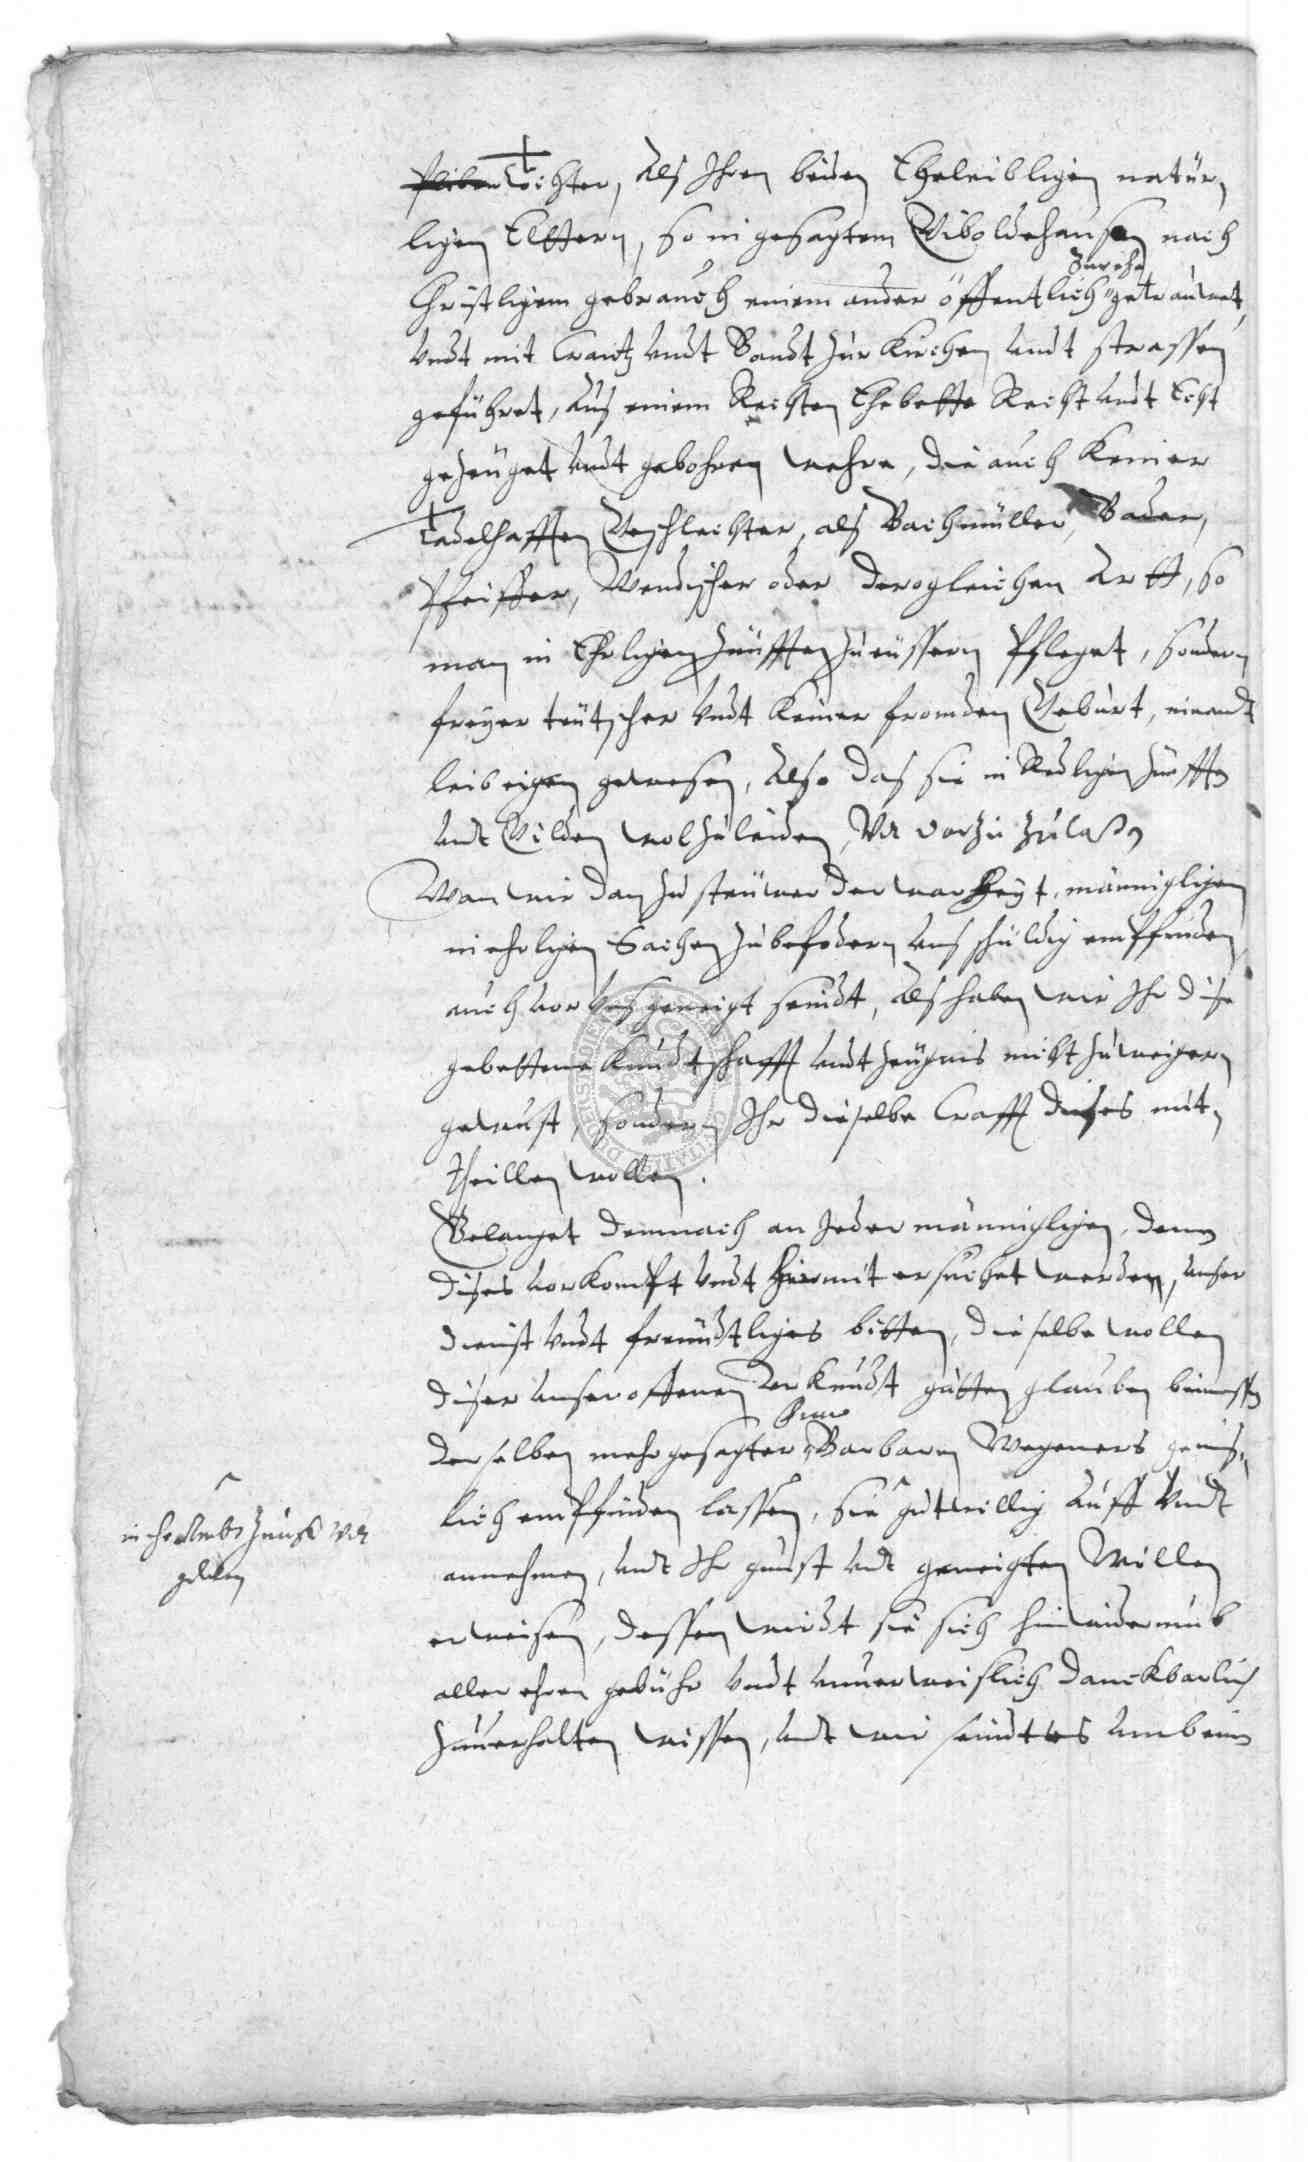 Tochter, als Ihren beiden Eheleibligen natür,
ligen Elttern, so in gesagtem Giboldehausen nach
Christligem gebrauch einem ander öffentlich getrauwet,
zur ehe
vndt mit Crantz vndt Bandt zur Kirchen vndt strassen
geführet, aus einem Rechten Ehebette Recht vndt Echt
gezeüget vndt gebohren wehre, die auch Keiner
tadelhafften Geschlechter, als Bachmüller, Bader,
Pfeiffer, Wendischer oder derogleichen Artt, so
man in Ehrligen Zünfften zu eüssern Pfleget, sondern
freyer teütscher vndt Keiner fromden Geburt, niemandt
leibeigen gewesen, also das sie in Redligen Zünfften
vndt Gilden wol zuleiden, vndt darzu zulassen
Wan wir dan zu steüwer der warheyt, männigligen
in ehrligen Sachen zubefodern vns schüldig empfinden
auch vor vns geneigt seindt, als haben wir Ihr dise
gebettene Kundtschafft vndt zeügnis nicht zuweigern
gewust, sondern Ihr dieselbe Crafft dieses mit,
theillen wollen.
Gelanget demnach an Jeder männigligen, denen
dises vorkompt vndt hiermit ersuchet werden, vnser
dienst vndt freündtliges bitten, dieselbe wollen
diser vnser offenen Vrkundt gutten glauben beimessen
derselben mehrgesagter Barbaren Wegeners genis,
lich empfinden lassen, sie gutwillig auff vndt
in ehrliebende Zunfft vndt
gilden
annehmen, vndt Ihr gunst vndt geneigten Willen
erweisen, dessen wirdt sie sich hinwiderumb
aller ehren gebühr vndt vnuerweislich danckbarlich
zuuerhalten wissen, vndt wir seindt es vmb einen